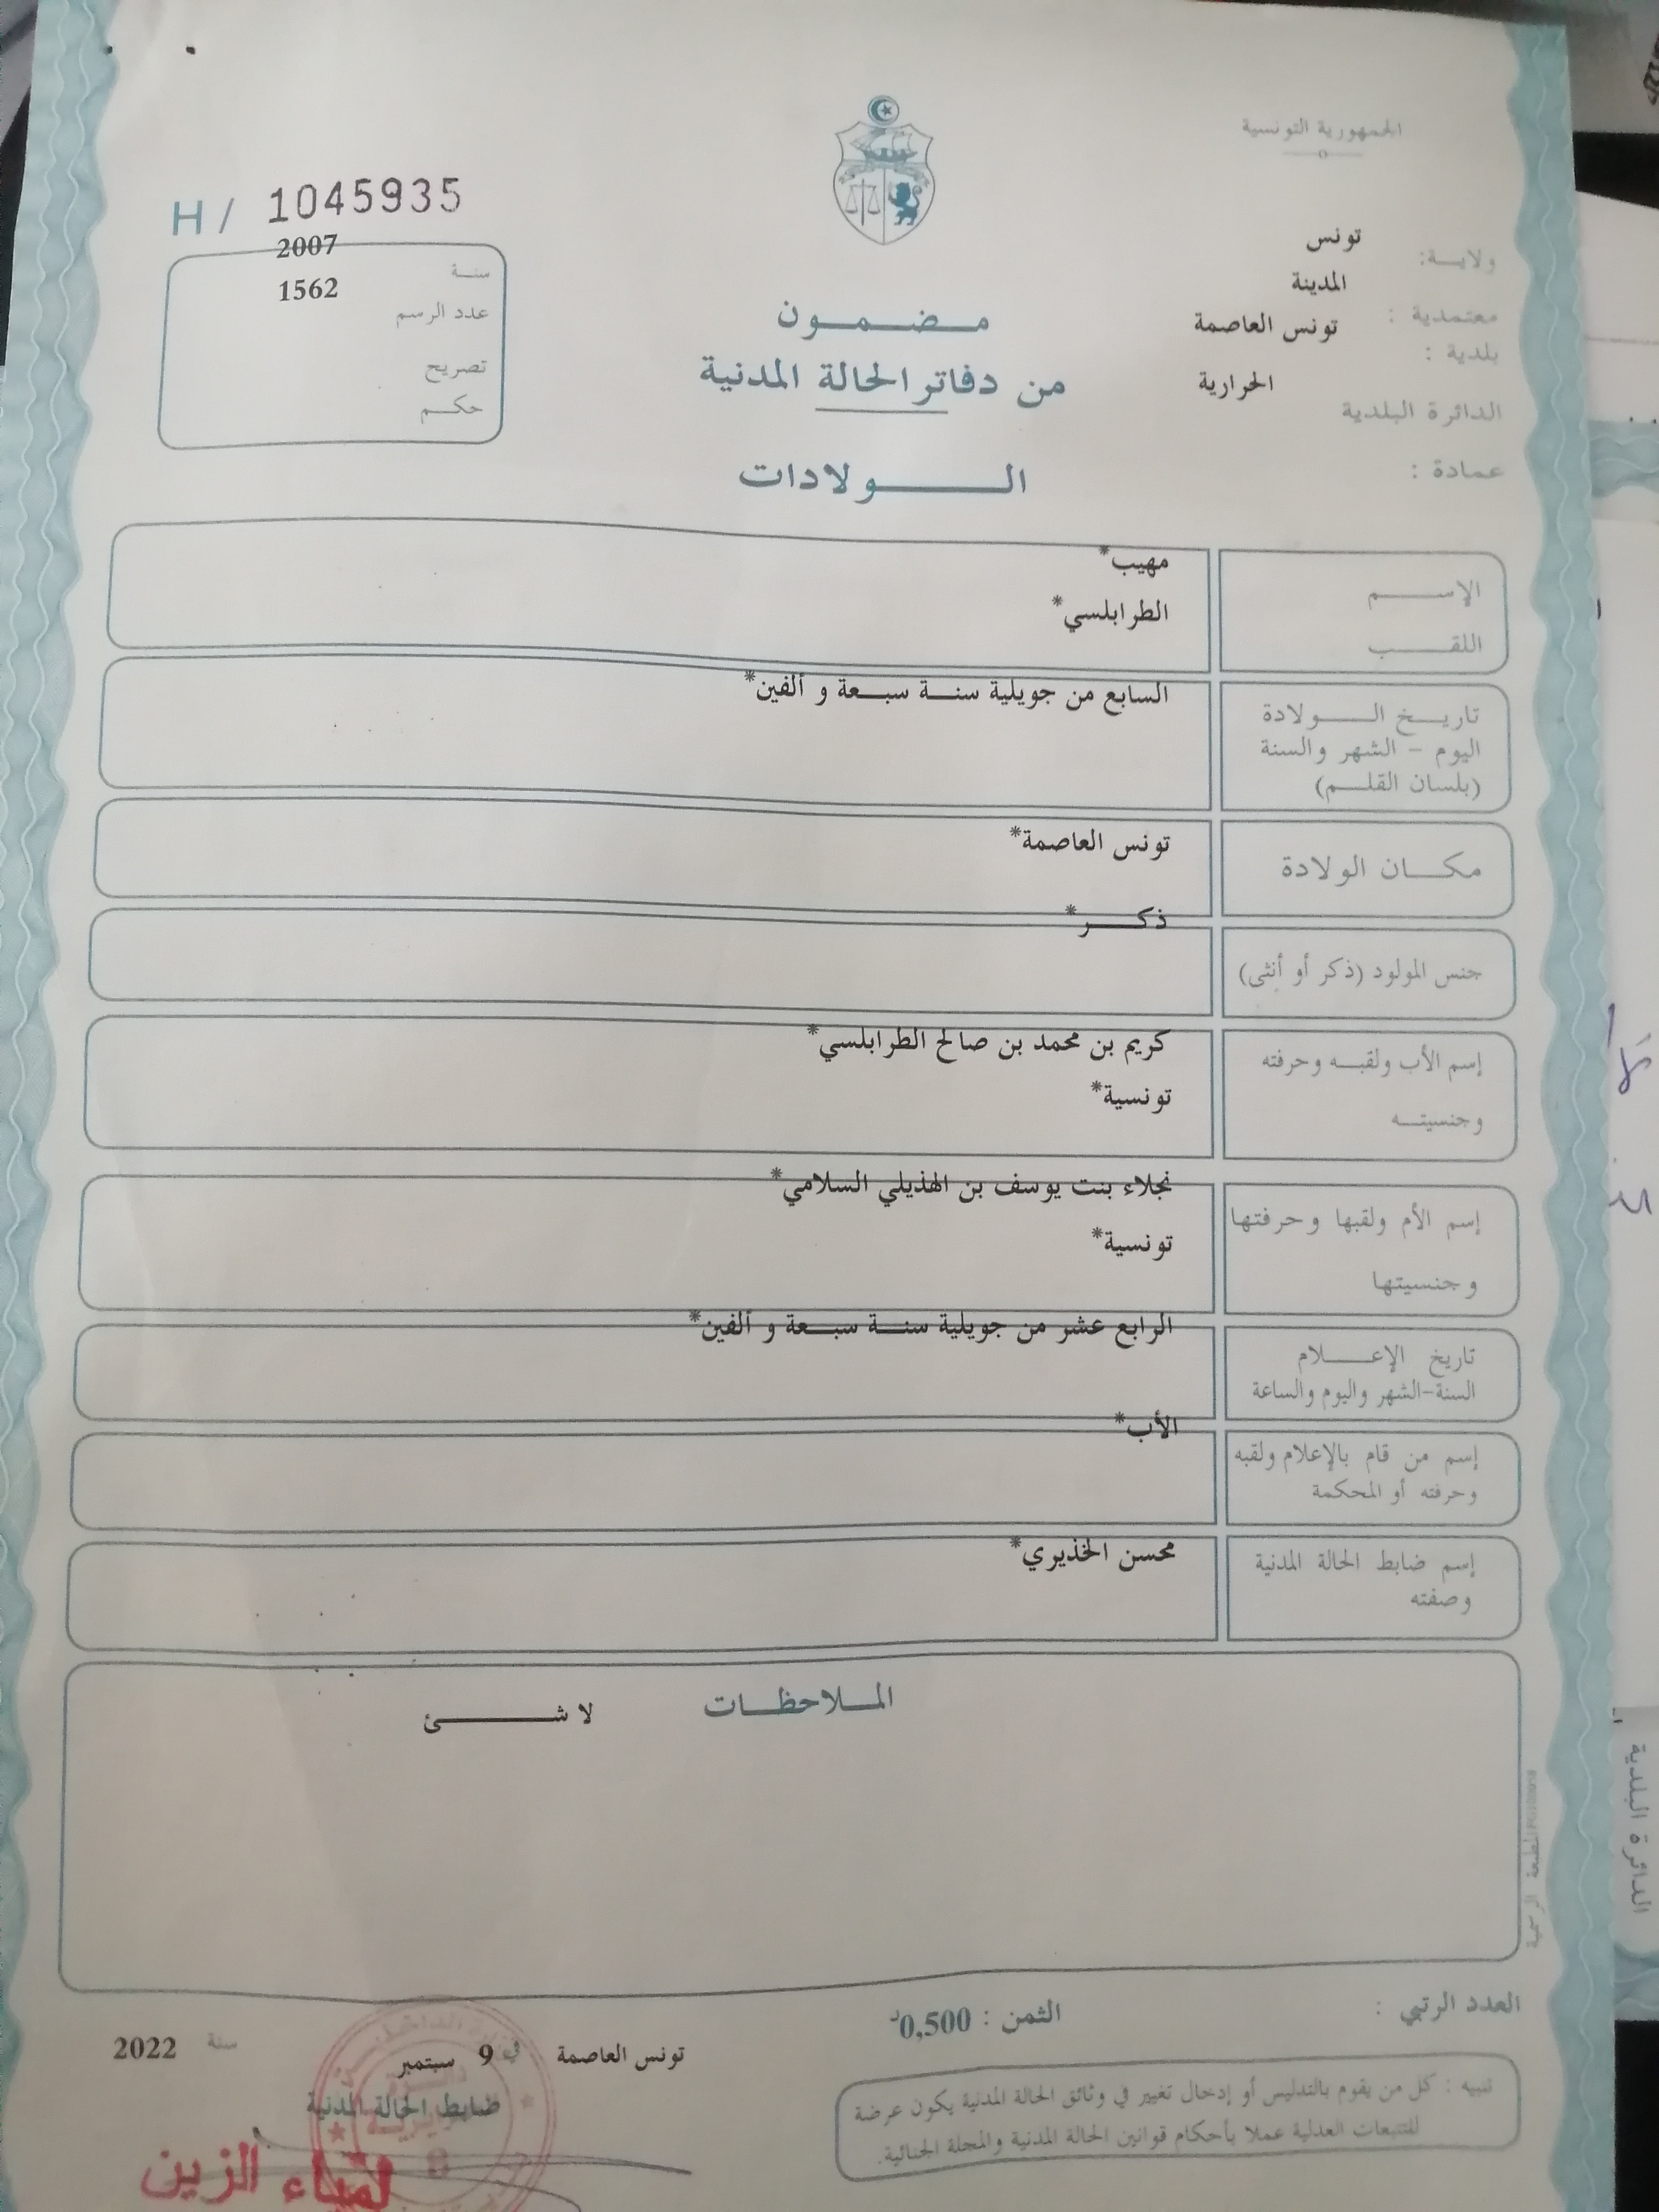 الجمهورية التونسية
H/ 1045935
ولاية: تونس
معتمدية : المدينة
بلدية : تونس العاصمة
الدائرة البلدية الحرارية
عمادة :
سنة 2007
عدد الرسم 1562
تصريح
حكم
مضمون
من دفاتر الحالة المدنية
الولادات
الإسم مهيب*
اللقب الطرابلسي*
تاريخ الولادة السابع من جويلية سنة سبعة و ألفين*
اليوم - الشهر والسنة
(بلسان القلم)
مكان الولادة تونس العاصمة*
جنس المولود (ذكر أو أنثى) ذكر*
إسم الأب ولقبه وحرفته كريم بن محمد بن صالح الطرابلسي*
وجنسيته تونسية*
إسم الأم ولقبها وحرفتها نجلاء بنت يوسف بن الهذيلي السلامي*
وجنسيتها تونسية*
تاريخ الإعلام الرابع عشر من جويلية سنة سبعة و ألفين*
السنة-الشهر واليوم والساعة
إسم من قام بالإعلام ولقبه الأب*
وحرفته أو المحكمة
إسم ضابط الحالة المدنية محسن الخذيري*
وصفته
الملاحظات لا شئ
المطبعة الرسمية
العدد الرتبي :
الثمن : 0,500د
تونس العاصمة في 9 سبتمبر سنة 2022
ضابط الحالة المدنية
لمياء الزين
تنبيه : كل من يقوم بالتدليس أو إدخال تغيير في وثائق الحالة المدنية يكون عرضة
للتتبعات العدلية عملا بأحكام قوانين الحالة المدنية والمجلة الجنائية.
الدائرة البلدية